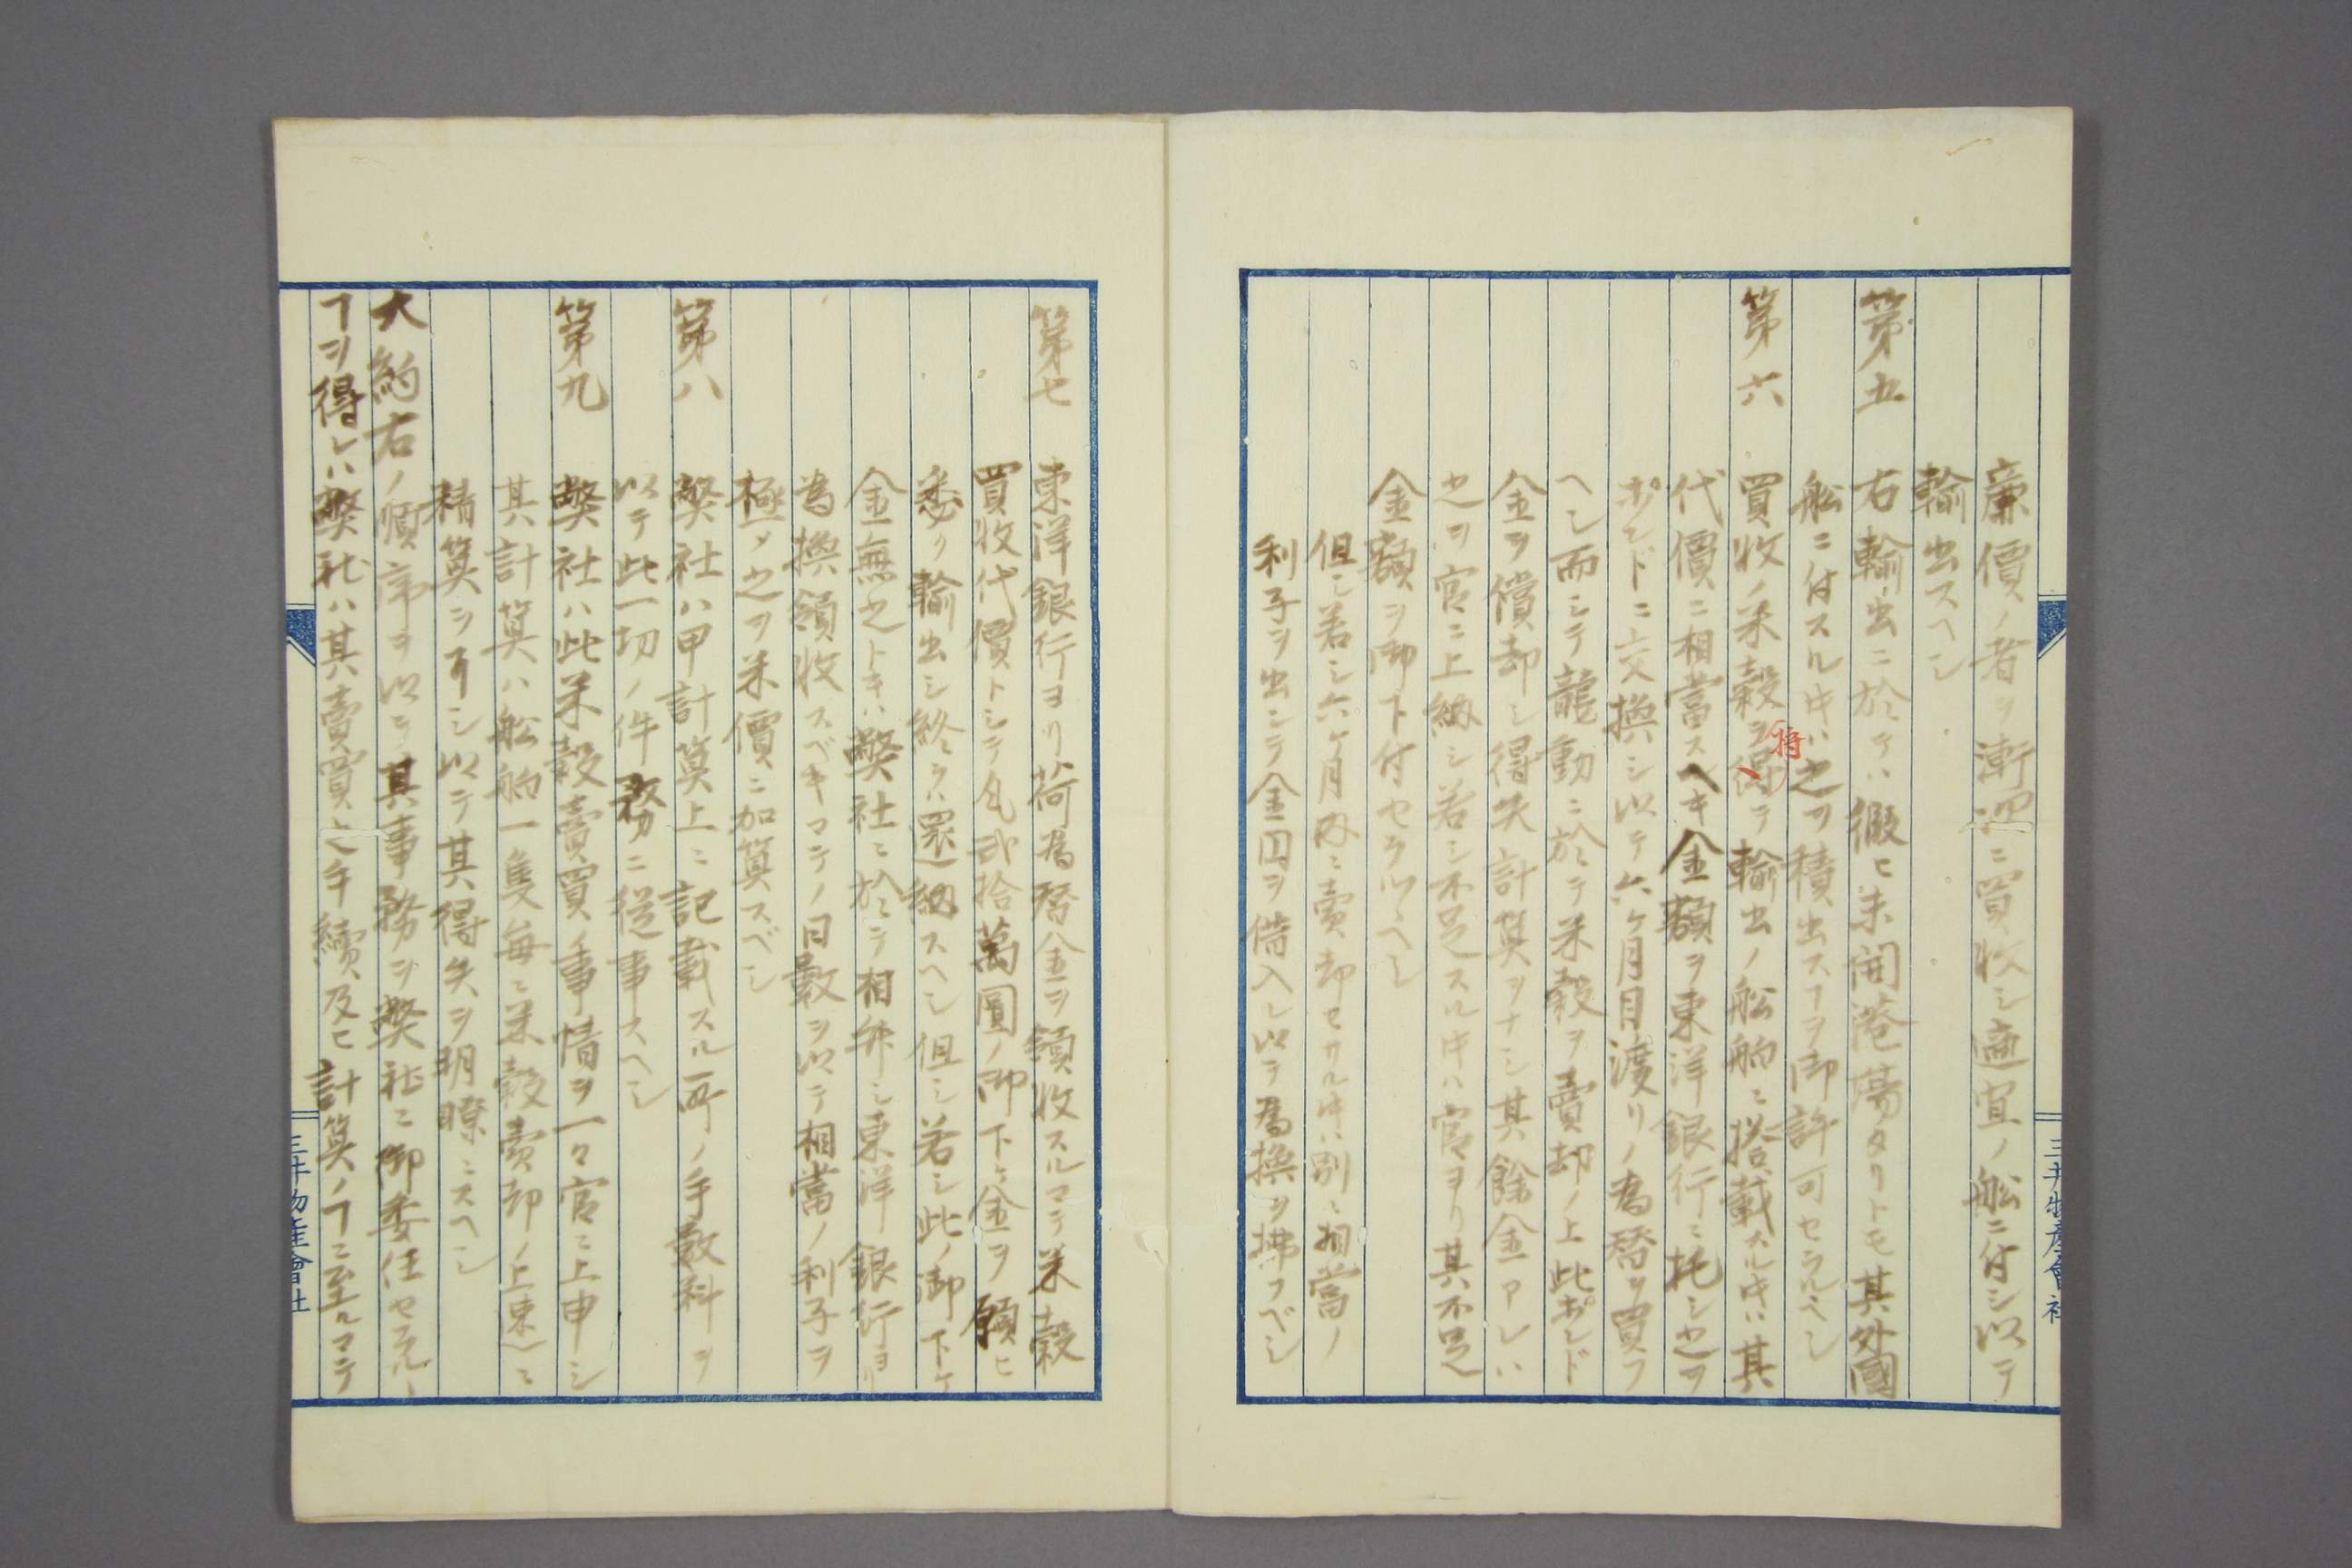 廉價ノ者ヲ漸次ニ買收シ適宜ノ舩ニ付シ以テ
輸出スヘシ
第五 右輸出ニ於テハ假ヒ未開港場タリトモ其外國
舩ニ付スル时ハ之ヲ積出スヿヲ御許可セラルヘシ
第六 買收ノ米穀ヲ得テ輸出ノ舩舶ニ搭載スル时ハ其
将
代價ニ相當スヘキ金額ヲ東洋銀行ニ托シ之ヲ
ポンドニ交換シ以テ六ケ月目渡リノ為替ヲ買フ
ヘシ而シテ龍動ニ於テ米穀ヲ賣却ノ上此ポンド
金ヲ償却シ得失計算ヲナシ其餘金アレハ
之ヲ官ニ上納シ若シ不足スル时ハ官ヨリ其不足
金額ヲ御下付セラルヘシ
但シ若シ六ケ月内ニ賣却セサル时ハ別ニ相當ノ
利子ヲ出シテ金円ヲ借入レ以テ為換ヲ拂フベシ
三井物產會社
第七 東洋銀行ヨリ荷為替金ヲ領收スルマテ米穀
買收代價トシテ凡弐拾萬圓ノ御下ケ金ヲ願ヒ
悉ク輸出シ終ラハ還納スヘシ但シ若シ此ノ御下ケ
金無之トキハ弊社ニ於テ相辨シ東洋銀行ヨリ
為換領收スベキマテノ日數ヲ以テ相當ノ利子ヲ
極メ之ヲ米價ニ加算スベシ
第八 弊社ハ甲計算上ニ記載スル所ノ手數料ヲ
以テ此一切ノ件務ニ從事スヘシ
第九 弊社ハ此米穀賣買ノ事情ヲ一々官ニ上申シ
其計算ハ舩舶一隻毎ニ米穀賣却ノ上速ニ
精算ヲ可シ以テ其得失ヲ明瞭ニスヘシ
大約右ノ順序ヲ以テ其事務ヲ弊社ニ御委任セラルヽ
ヿヲ得レハ弊社ハ其賣買之手續及ヒ計算ノヿニ至ルマテ
三井物產會社